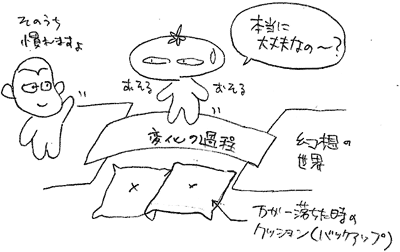 そのうち
慣れますよ
本当に
大丈夫なの〜?
おそる
おそる
変化の過程
幻想の
世界
万が一落ちた時の
クッション(バックアップ)